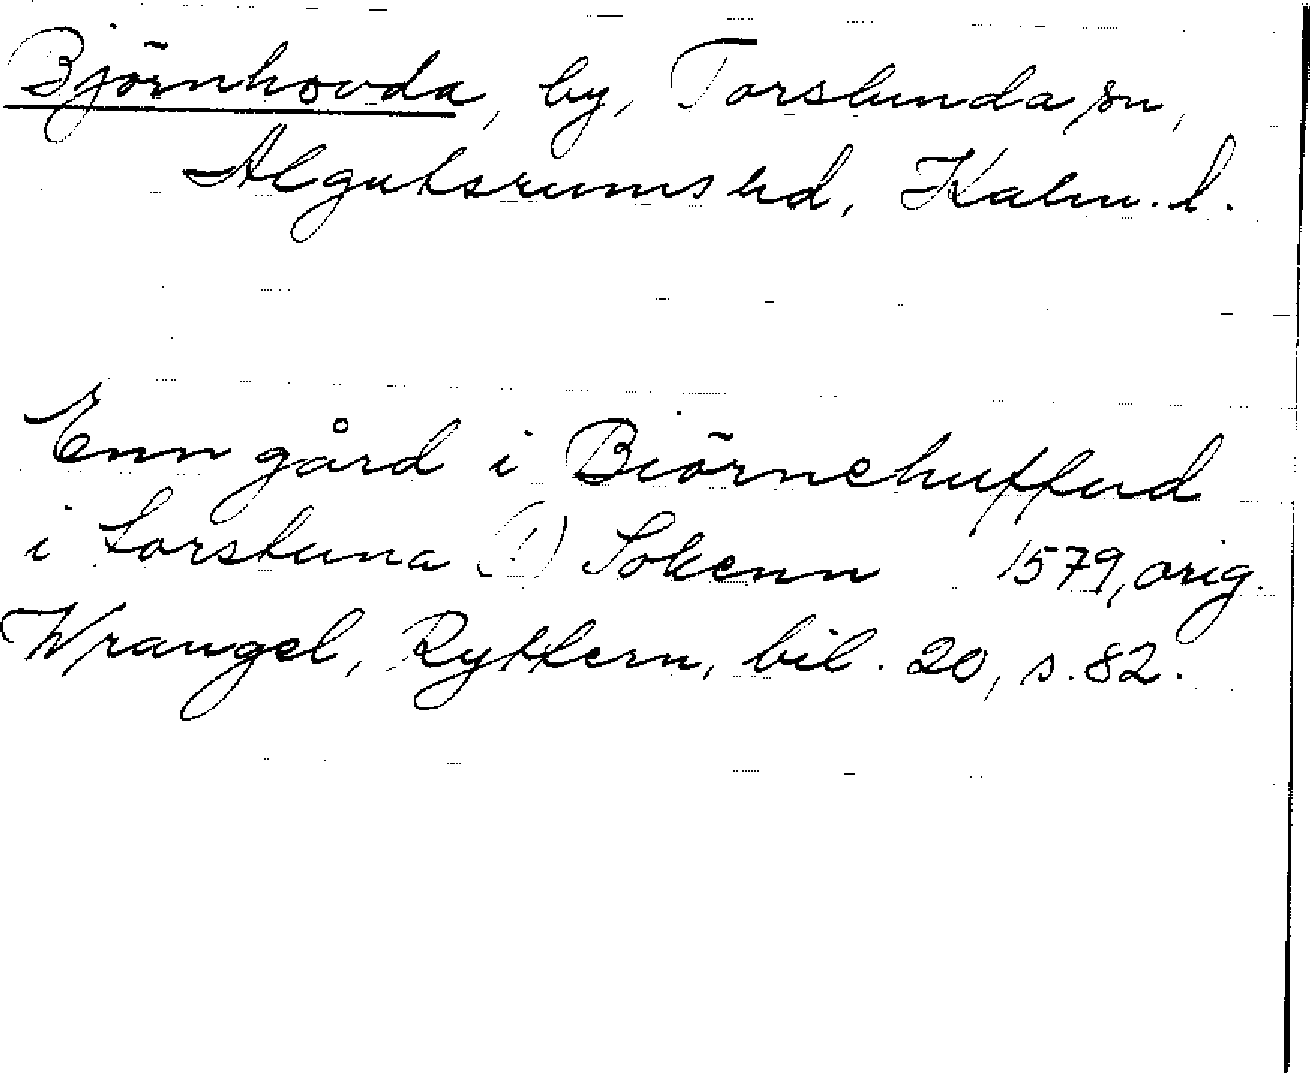 Björnhovda, by, Torslunda sn,
Algutsrums hd, Kalm. l.
Enn gård i Biörnehuffud
i Torstuna (!) Sokenn 1579, orig.
Wrangel, Ryttern, bil. 20, s. 82.